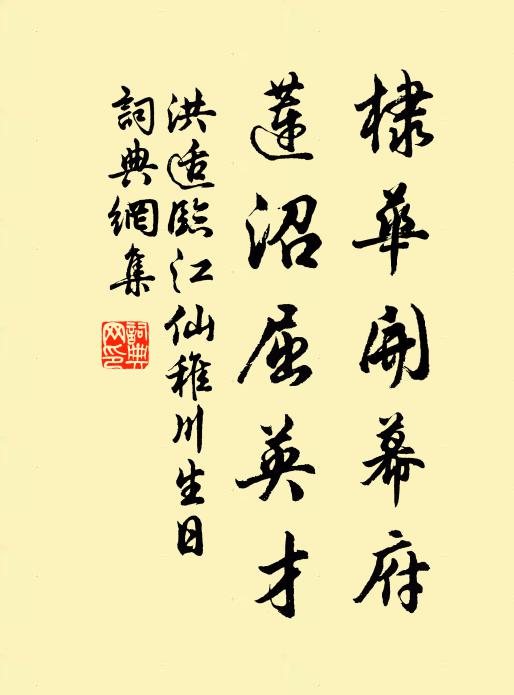 棣華開幕府
蓮沼屈英才
洪适臨江仙稚川生日
詞典網集
詞典網印